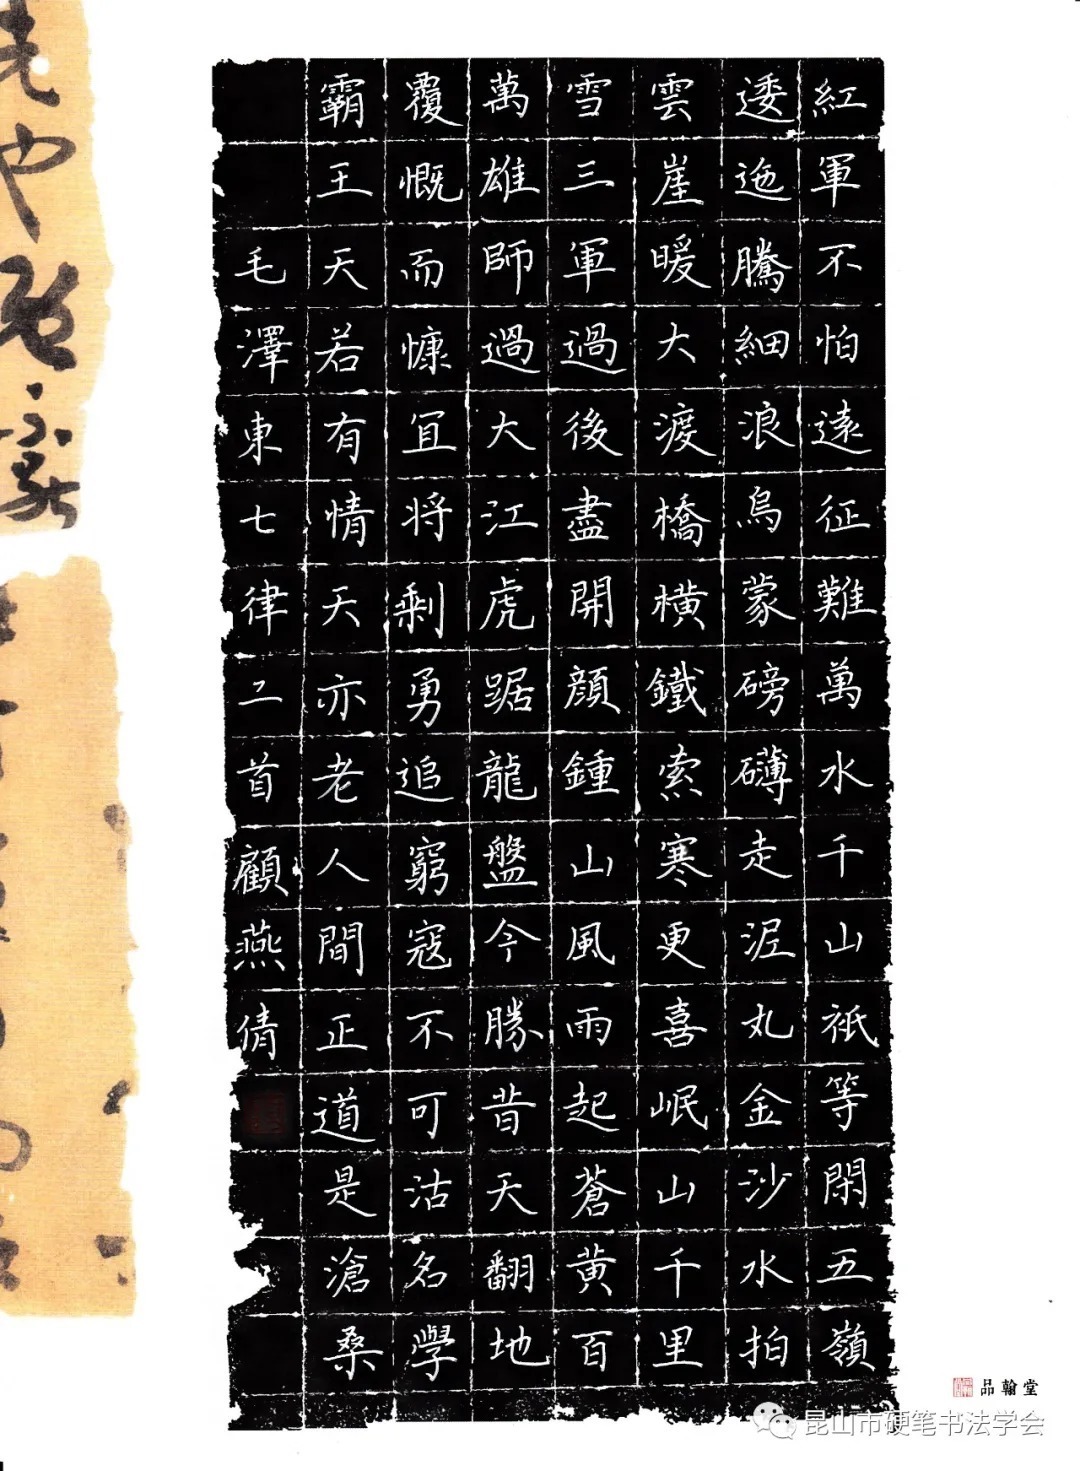 紅軍不怕遠征難萬水千山祇等閑五嶺
逶迤騰細浪烏蒙磅礴走泥丸金沙水拍
雲崖暖大渡橋橫鐵索寒更喜岷山千里
雪三軍過後盡開顏鍾山風雨起蒼黃百
萬雄師過大江虎踞龍盤今勝昔天翻地
覆慨而慷宜将剩勇追窮寇不可沽名學
霸王天若有情天亦老人間正道是滄桑
毛澤東七律二首顧燕倩
品翰堂
昆山市硬笔书法学会